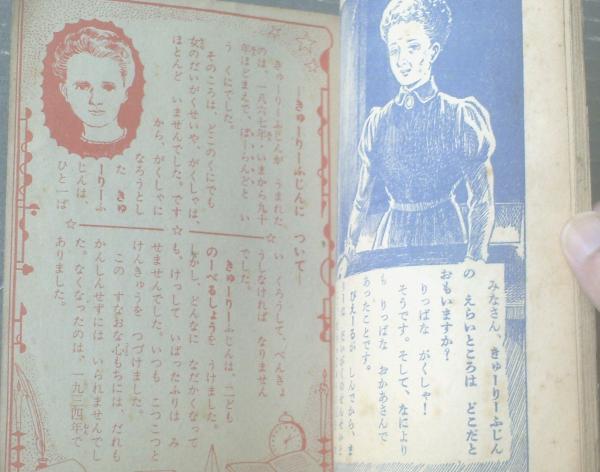 みなさん、きゅーりーふじん
の えらいところは どこだと
おもいますか?
りっぱな がくしゃ!
そうです。そして、なにより
も りっぱな おかあさんで
あったことです。
ぴえーるが しんでから、ま
―きゅーりーふじんに ついて―
きゅーりーふじんが うまれた
のは、一八六七年・いまから九十
年ほどまえで、ぽーらんどと い
う くにでした。
そのころは、どこのくにでも
女のだいがくせいや、がくしゃは、
ほとんど いませんでした。です
から、がくしゃに
なろうとし
た きゅ
ーりーふ
じんは、
ひと一ば
い くろうして、べんきょ
うしなければ なりません
でした。
きゅーりーふじんは、二ども
のーべるしょうを うけました。
しかし、どんなに なだかくなって
も、けっして いばったふりは み
せませんでした。いつも こつこつと
けんきゅうを つづけました。
この すなおな心もちには、だれも
かんしんせずには いられませんでし
た。なくなったのは、一九三四年で
ありました。